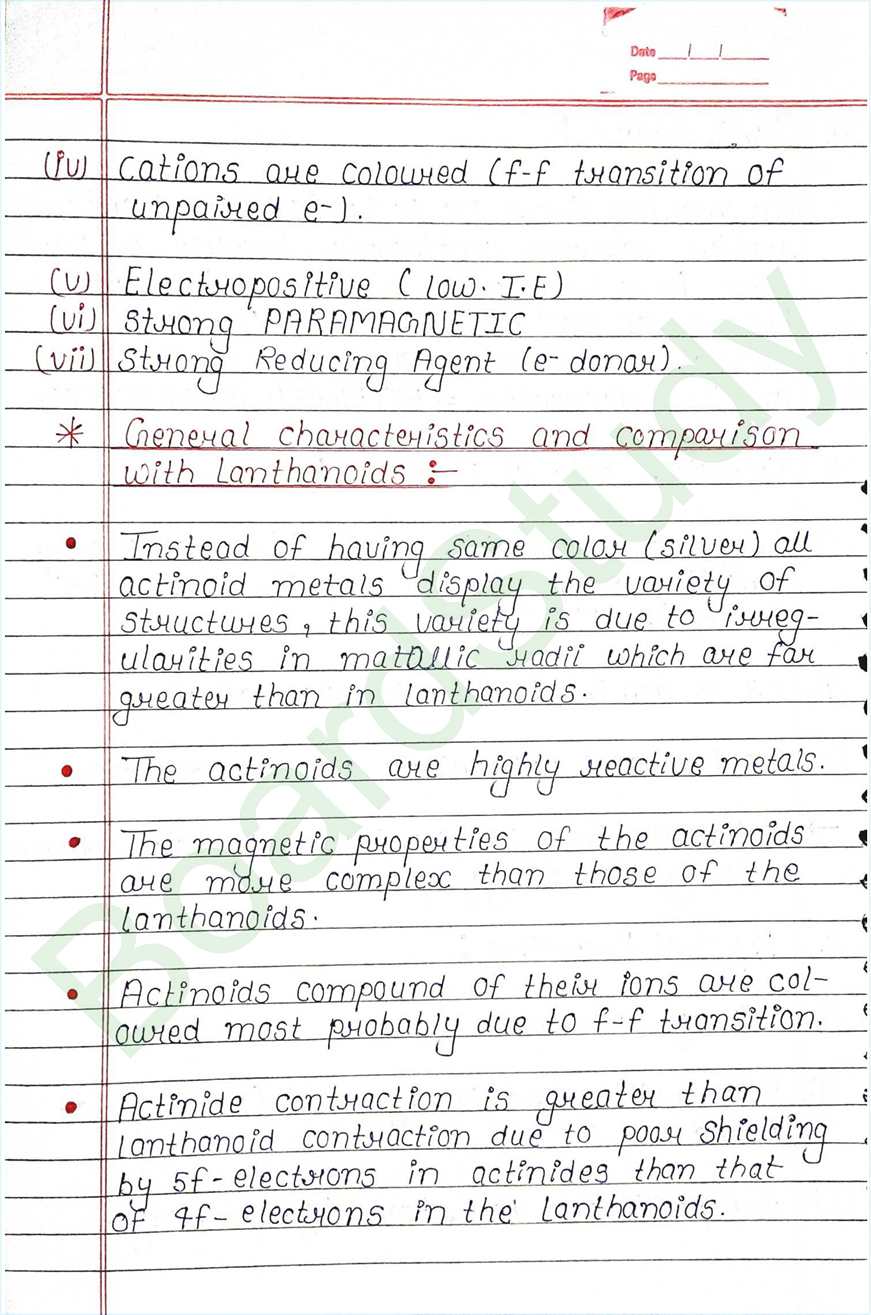 Date / /
Page
(iv) Cations are coloured (f-f transition of
unpaired e-).
(v) Electropositive (low. I.E)
(vi) Strong PARAMAGNETIC
(vii) Strong Reducing Agent (e- donar).
* General characteristics and comparison
with Lanthanoids :-
• Instead of having same color (silver) all
actinoid metals display the variety of
structures, this variety is due to irreg-
ularities in matallic radii which are far
greater than in lanthanoids.
• The actinoids are highly reactive metals.
• The magnetic properties of the actinoids
are more complex than those of the
lanthanoids.
• Actinoids compound of their ions are col-
oured most probably due to f-f transition.
• Actinide contraction is greater than
lanthanoid contraction due to poor shielding
by 5f-electrons in actinides than that
of 4f- electrons in the lanthanoids.
BoardStudy